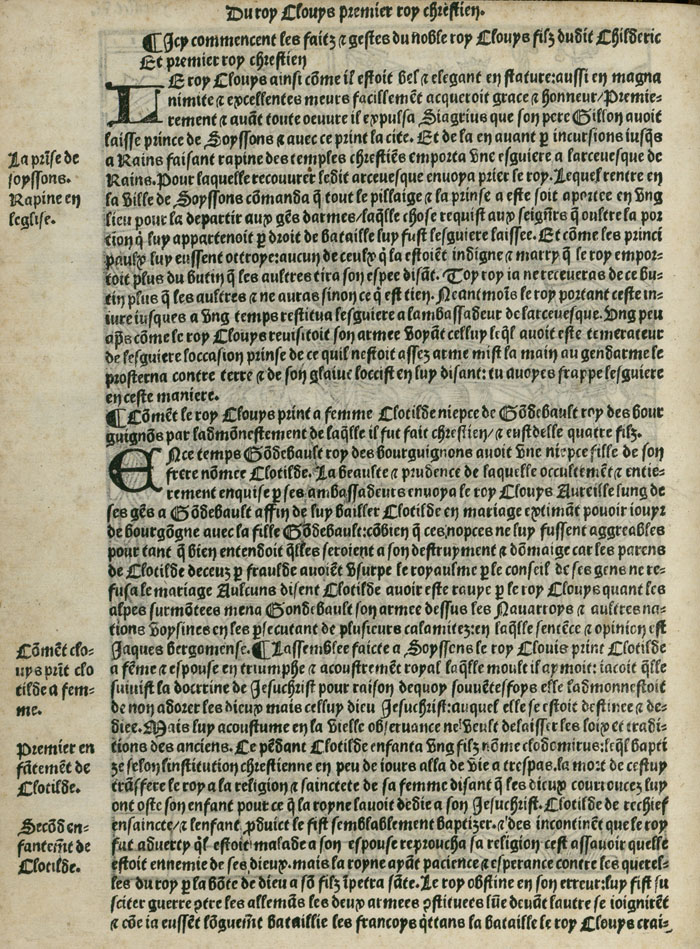 Du roy Clouys premier roy chrestien.
¶Icy commencent les faitz ⁊ gestes du noble roy Clouys filz dudit Childeric
Et premier roy chrestien
LE roy Clouys ainsi cõme il estoit bel ⁊ elegant en stature:aussi en magna
nimite ⁊ excellentes meurs facillemẽt acqueroit grace ⁊ honneur/Premie-
rement ⁊ auãt toute oeuure il expulsa Siagrius que son pere Gillon auoit
laisse prince de Soyssons ⁊ auec ce print la cite. Et de la en auant ꝑ incursions iusq̃s
a Rains faisant rapine des temples chrestiẽs emporta vne esguiere a larceuesque de
Rains. Pour laquelle recouurer ledit arceuesque enuoya prier le roy. Lequel rentre en
la ville de Soyssons cõmanda q̃ tout le pillaige ⁊ la prinse a este soit aportee en vng
lieu pour la departir aux gẽs darmes/laq̃lle chose requist aux seigñrs q̃ oultre la por
tion q̃ luy appartenoit ꝑ droit de bataille luy fust lesguiere laissee. Et cõme les princi
paulx luy eussent ottroye:aucun de ceulx q̃ la estoiẽt indigne ⁊ marry q̃ le roy empor-
toit plus du butin q̃ les aultres tira son espee disãt. Toy roy ia ne receueras de ce bu-
tin plus q̃ les aultres ⁊ ne auras sinon ce q̃ est tien. Neantmoĩs le roy portant ceste in-
iure iusques a vng temps restitua lesguiere a lambassadeur de larceuesque. Vng peu
ap̃s cõme le roy Clouys reuisitoit son armee voyãt celluy leq̃l auoit este temerateur
de lesguiere loccasion prinse de ce quil nestoit assez arme mist la main au gendarme le
prosterna contre terre ⁊ de son glaiue loccist en luy disant: tu auoyes frappe lesguiere
en ceste maniere.
¶Cõmẽt le roy Clouys print a femme Clotilde niepce de Gõdebault roy des bour
guignõs par ladmõnestement de laq̃lle il fut fait chrestien/⁊ eust delle quatre filz.
ENce temps Gõdebault roy des bourguignons auoit vne niepce fille de son
frere nõmee Clotilde. La beaulte ⁊ prudence de laquelle occultemẽt ⁊ entie-
rement enquise ꝑ ses ambassadeurs enuoya le roy Clouys Aureille lung de
ses gẽs a Gõdebault affin de luy bailler Clotilde en mariage extimãt pouoir iouyr
de bourgõgne auec la fille Gõdebault:cõbien q̃ ces nopces ne luy fussent aggreables
pour tant q̃ bien entendoit q̃lles seroient a son destruyment ⁊ dõmaige car les parens
de Clotilde deceuz ꝑ fraulde auoiẽt vsurpe le royaulme ꝑ le conseil de ses gens ne re-
fusa le mariage Aulcuns disent Clotilde auoir este rauye ꝑ le roy Clouys quant les
alpes surmõtees mena Gondebault son armee dessus les Nauarroys ⁊ aultres na-
tions voysines en les ꝑsecutant de plusieurs calamitez:en laq̃lle sentẽce ⁊ opinion est
Jaques bergomense. ¶Lassemblee faicte a Soyssons le roy Clouis print Clotilde
a fẽme ⁊ espouse en triumphe ⁊ acoustrement royal laq̃lle moult il aymoit: iacoit q̃lle
suiuist la doctrine de Jesuchrist pour raison dequoy souuẽtesfoys elle ladmonnestoit
de non adorer les dieux mais celluy dieu Jesuchrist:auquel elle se estoit destinee ⁊ de-
diee. Mais luy acoustume en la vielle obseruance ne veult delaisser les loix et tradi-
tions des anciens. Ce pẽdant Clotilde enfanta vng filz nõme clodomirus:leq̃l bapti
ze selon linstitution chrestienne en peu de iours alla de vie a trespas. la mort de cestuy
trãffere le roy a la religion ⁊ sainctete de sa femme disant q̃ les dieux courroucez luy
ont oste son enfant pour ce q̃ la royne lauoit dedie a son Jesuchrist. Clotilde de rechief
ensaincte/⁊ lenfant ꝓduict le fist semblablement baptizer. ⁊ des incontinẽt que le roy
fut aduerty q̃l estoit malade a son espouse reproucha sa religion cest assauoir quelle
estoit ennemie de ses dieux. mais la royne ayãt pacience ⁊ esperance contre les querel-
les du roy ꝑ la bõte de dieu a sõ filz ĩpetra sãte. Le roy obstine en son erreur:luy fist su
sciter guerre ꝯtre les allemãs les deux armees ꝯstituees lũe deuãt lautre se ioignirẽt
⁊ cõe ia eussẽt lõguemẽt bataillie les francoys q̃ttans la bataille le roy Clouys crai-
La prĩse de
soyssons.
Rapine en
leglise.
Cõmẽt clo-
uys prĩt clo
tilde a fem-
me.
Premier en
fãtemẽt de
Clotilde.
Secõd en-
fantem̃t de
Clotilde.